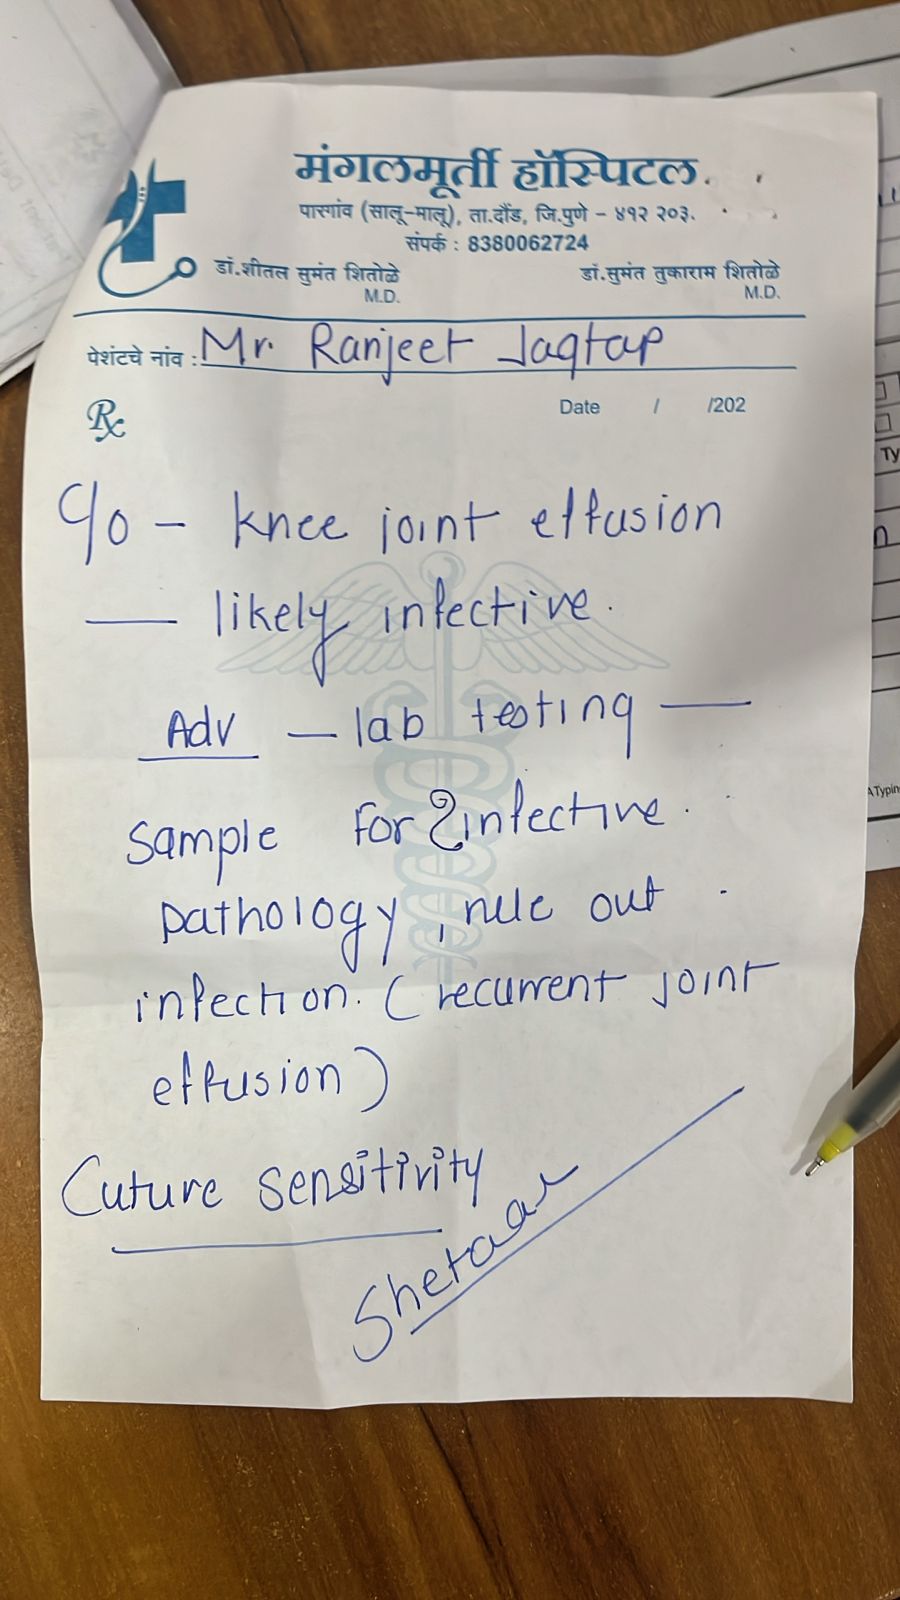 मंगलमूर्ती हॉस्पिटल.
पारगांव (सालू-मालू), ता.दौंड, जि.पुणे - ४१२ २०३.
संपर्क : 8380062724
डॉ.शीतल सुमंत शितोळे
M.D.
डॉ.सुमंत तुकाराम शितोळे
M.D.
पेशंटचे नांव : Mr. Ranjeet Jagtap
Rx
Date / /202
C/o - knee joint effusion
— likely infective.
Adv — lab testing —
sample For ? infective.
pathology, rule out
infection. (recurrent joint
effusion)
Cuture sensitivity
Ty
A Typin